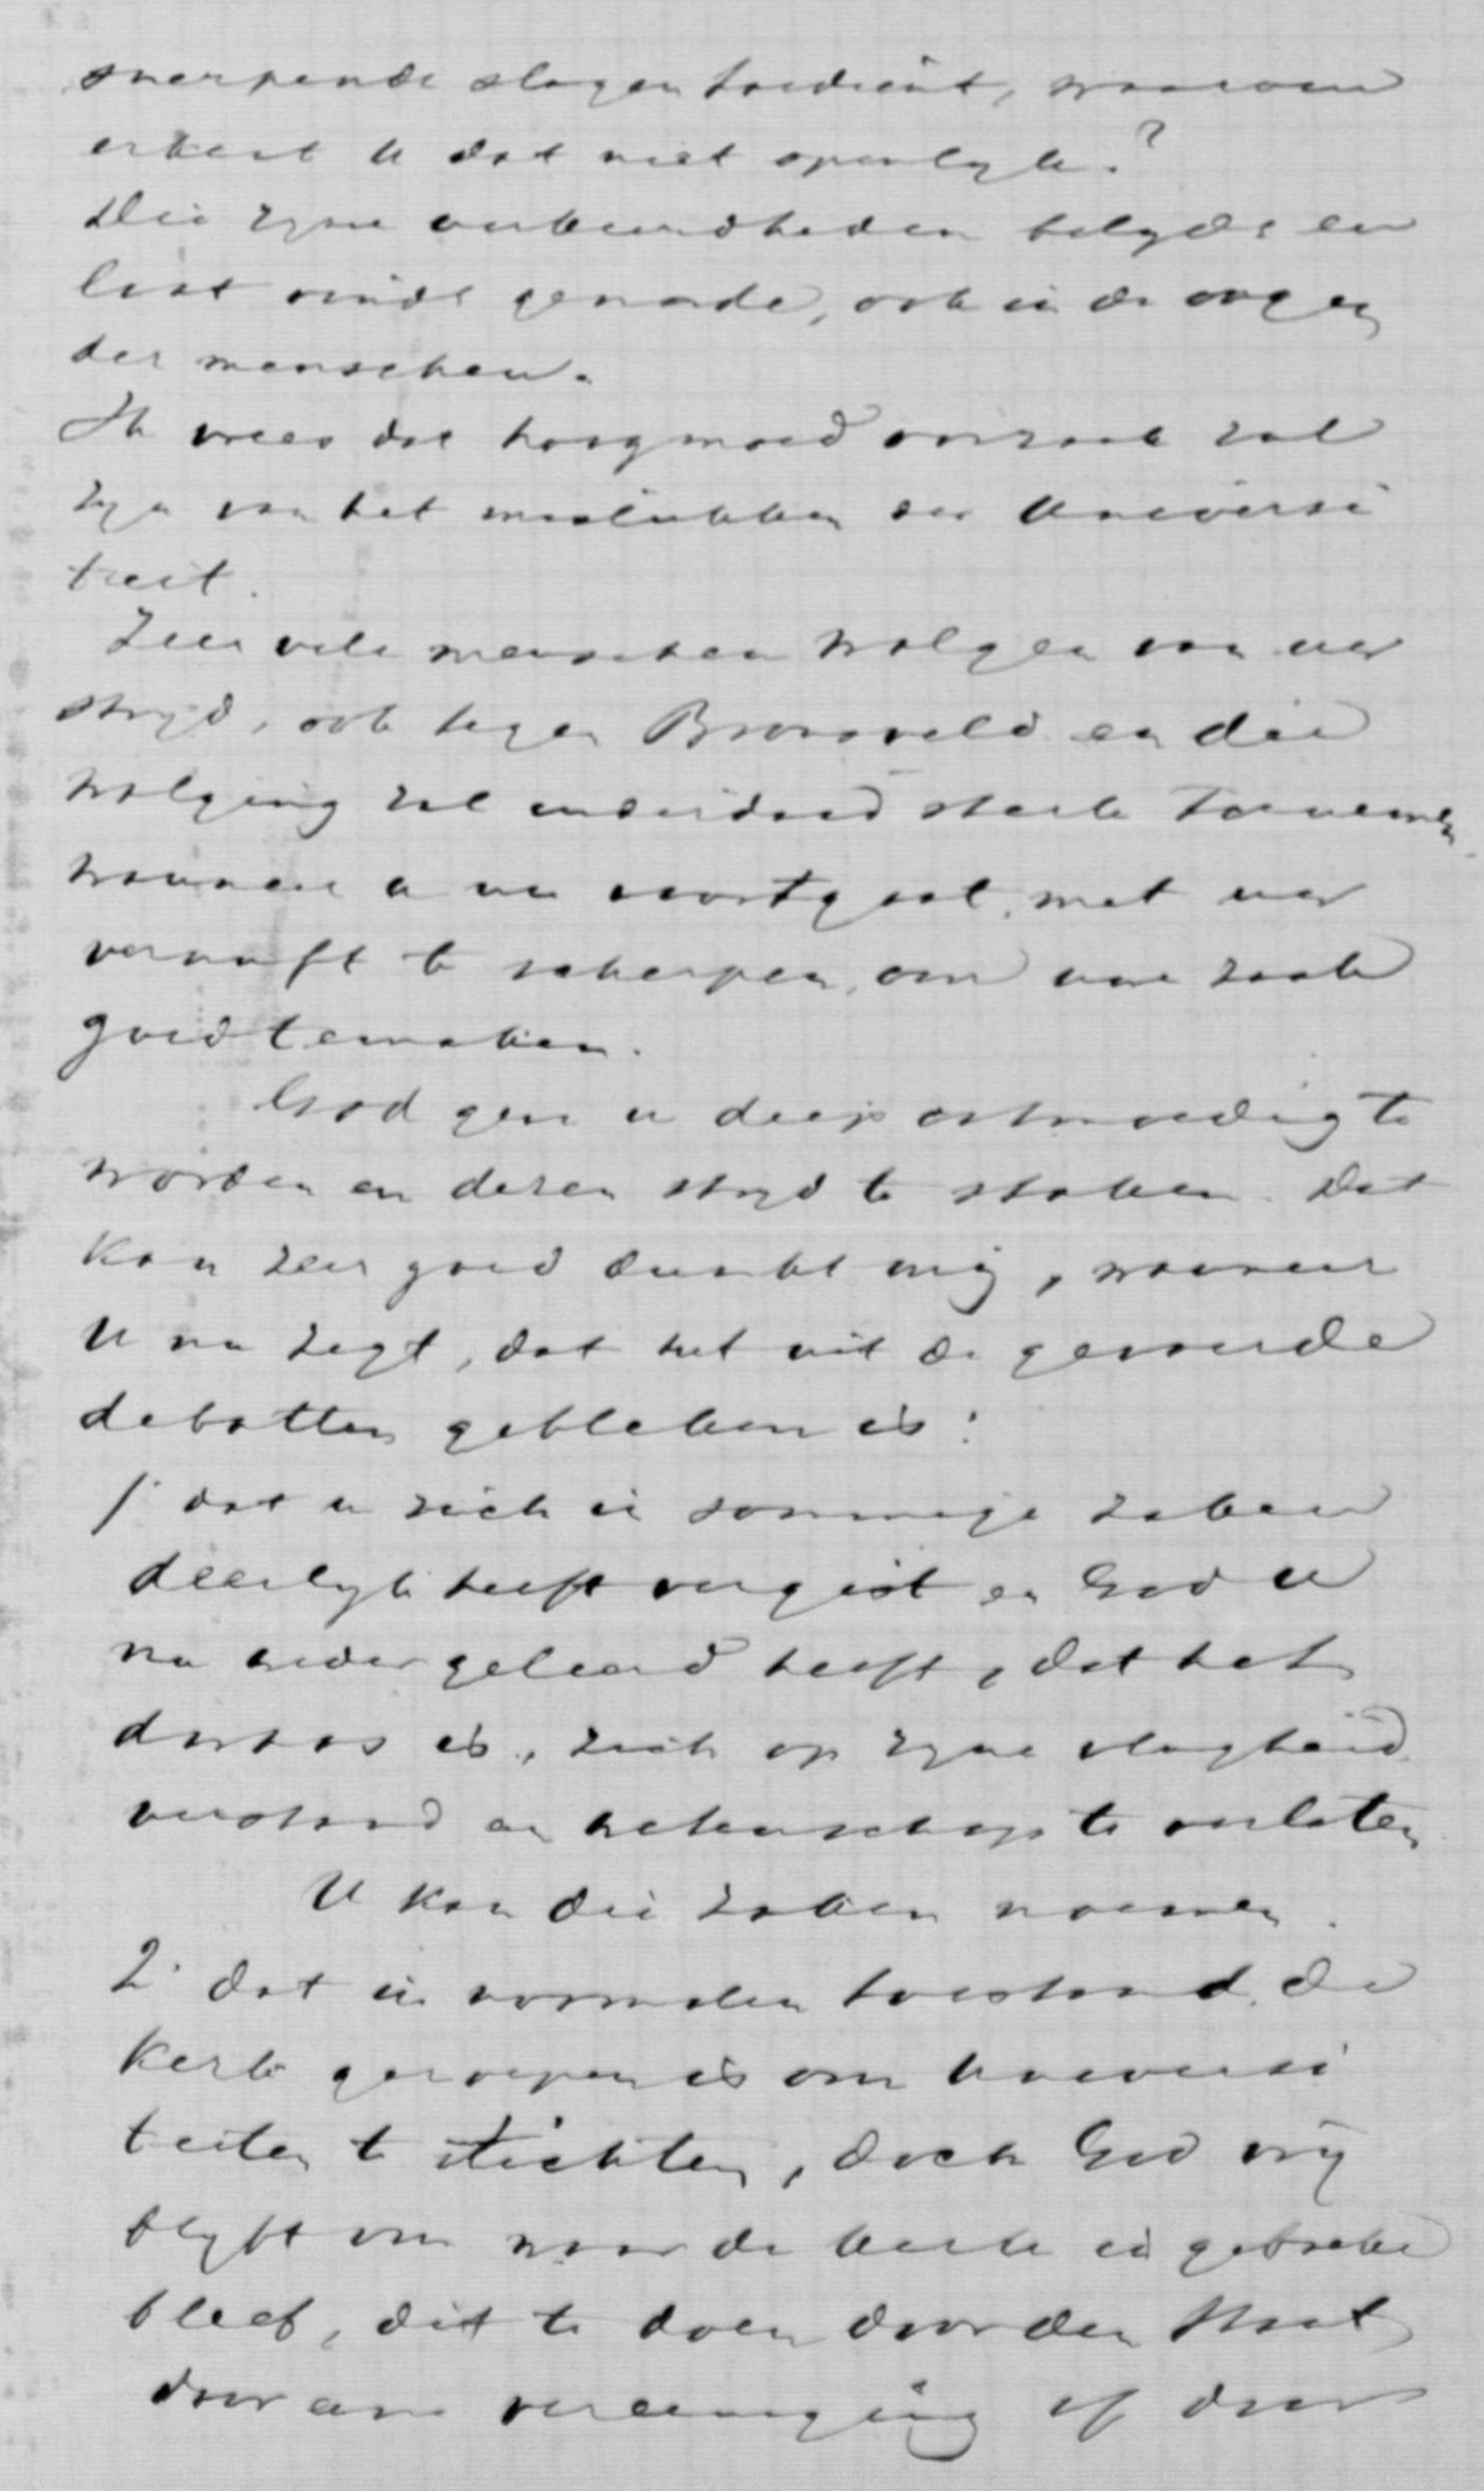 snerpende slagen toedient, waarom
erkent U dat niet openlyk?
Die zyne verkeerdheden belydt en
laat vindt genade, ook in de oogen
der menschen.
Ik vrees dat hoogmoed oorzaak zal
zyn van het mislukken der Universi
teit.
Zeer vele menschen walgen van uw
stryd, ook tegen Bronsveld en die
walging zal inderdaad sterk toenemen
wanneer u nu voortgaat, met uw
vernuft te scherpen, om uwe zaak
goed te maken.
God geve u diep ootmoedig te
worden en dezen stryd te staken. Dat
kan zeer goed dunkt mij, wanneer
U nu zegt, dat het uit de gevoerde
debatten gebleken is:
1° dat u zich in sommige zaken
deerlyk heeft vergist en God U
nu weder geleerd heeft, dat het
dwaas is, zich op zyne vlugheid
verstand en wetenschap te verlaten
U kan die zaken noemen.
2° dat in normalen toestand de
kerk geroepen is om Universi
teiten te stichten, doch God vrij
blyft om waar de kerk in gebreke
bleef, dit te doen door den Staat
door eene vereeniging of door